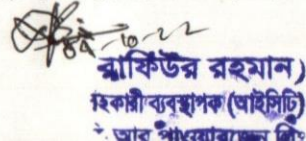 রাফিউর রহমান)
হকারী ব্যবস্থাপক (আইসিটি)
আর পাওয়ারজেন লিঃ